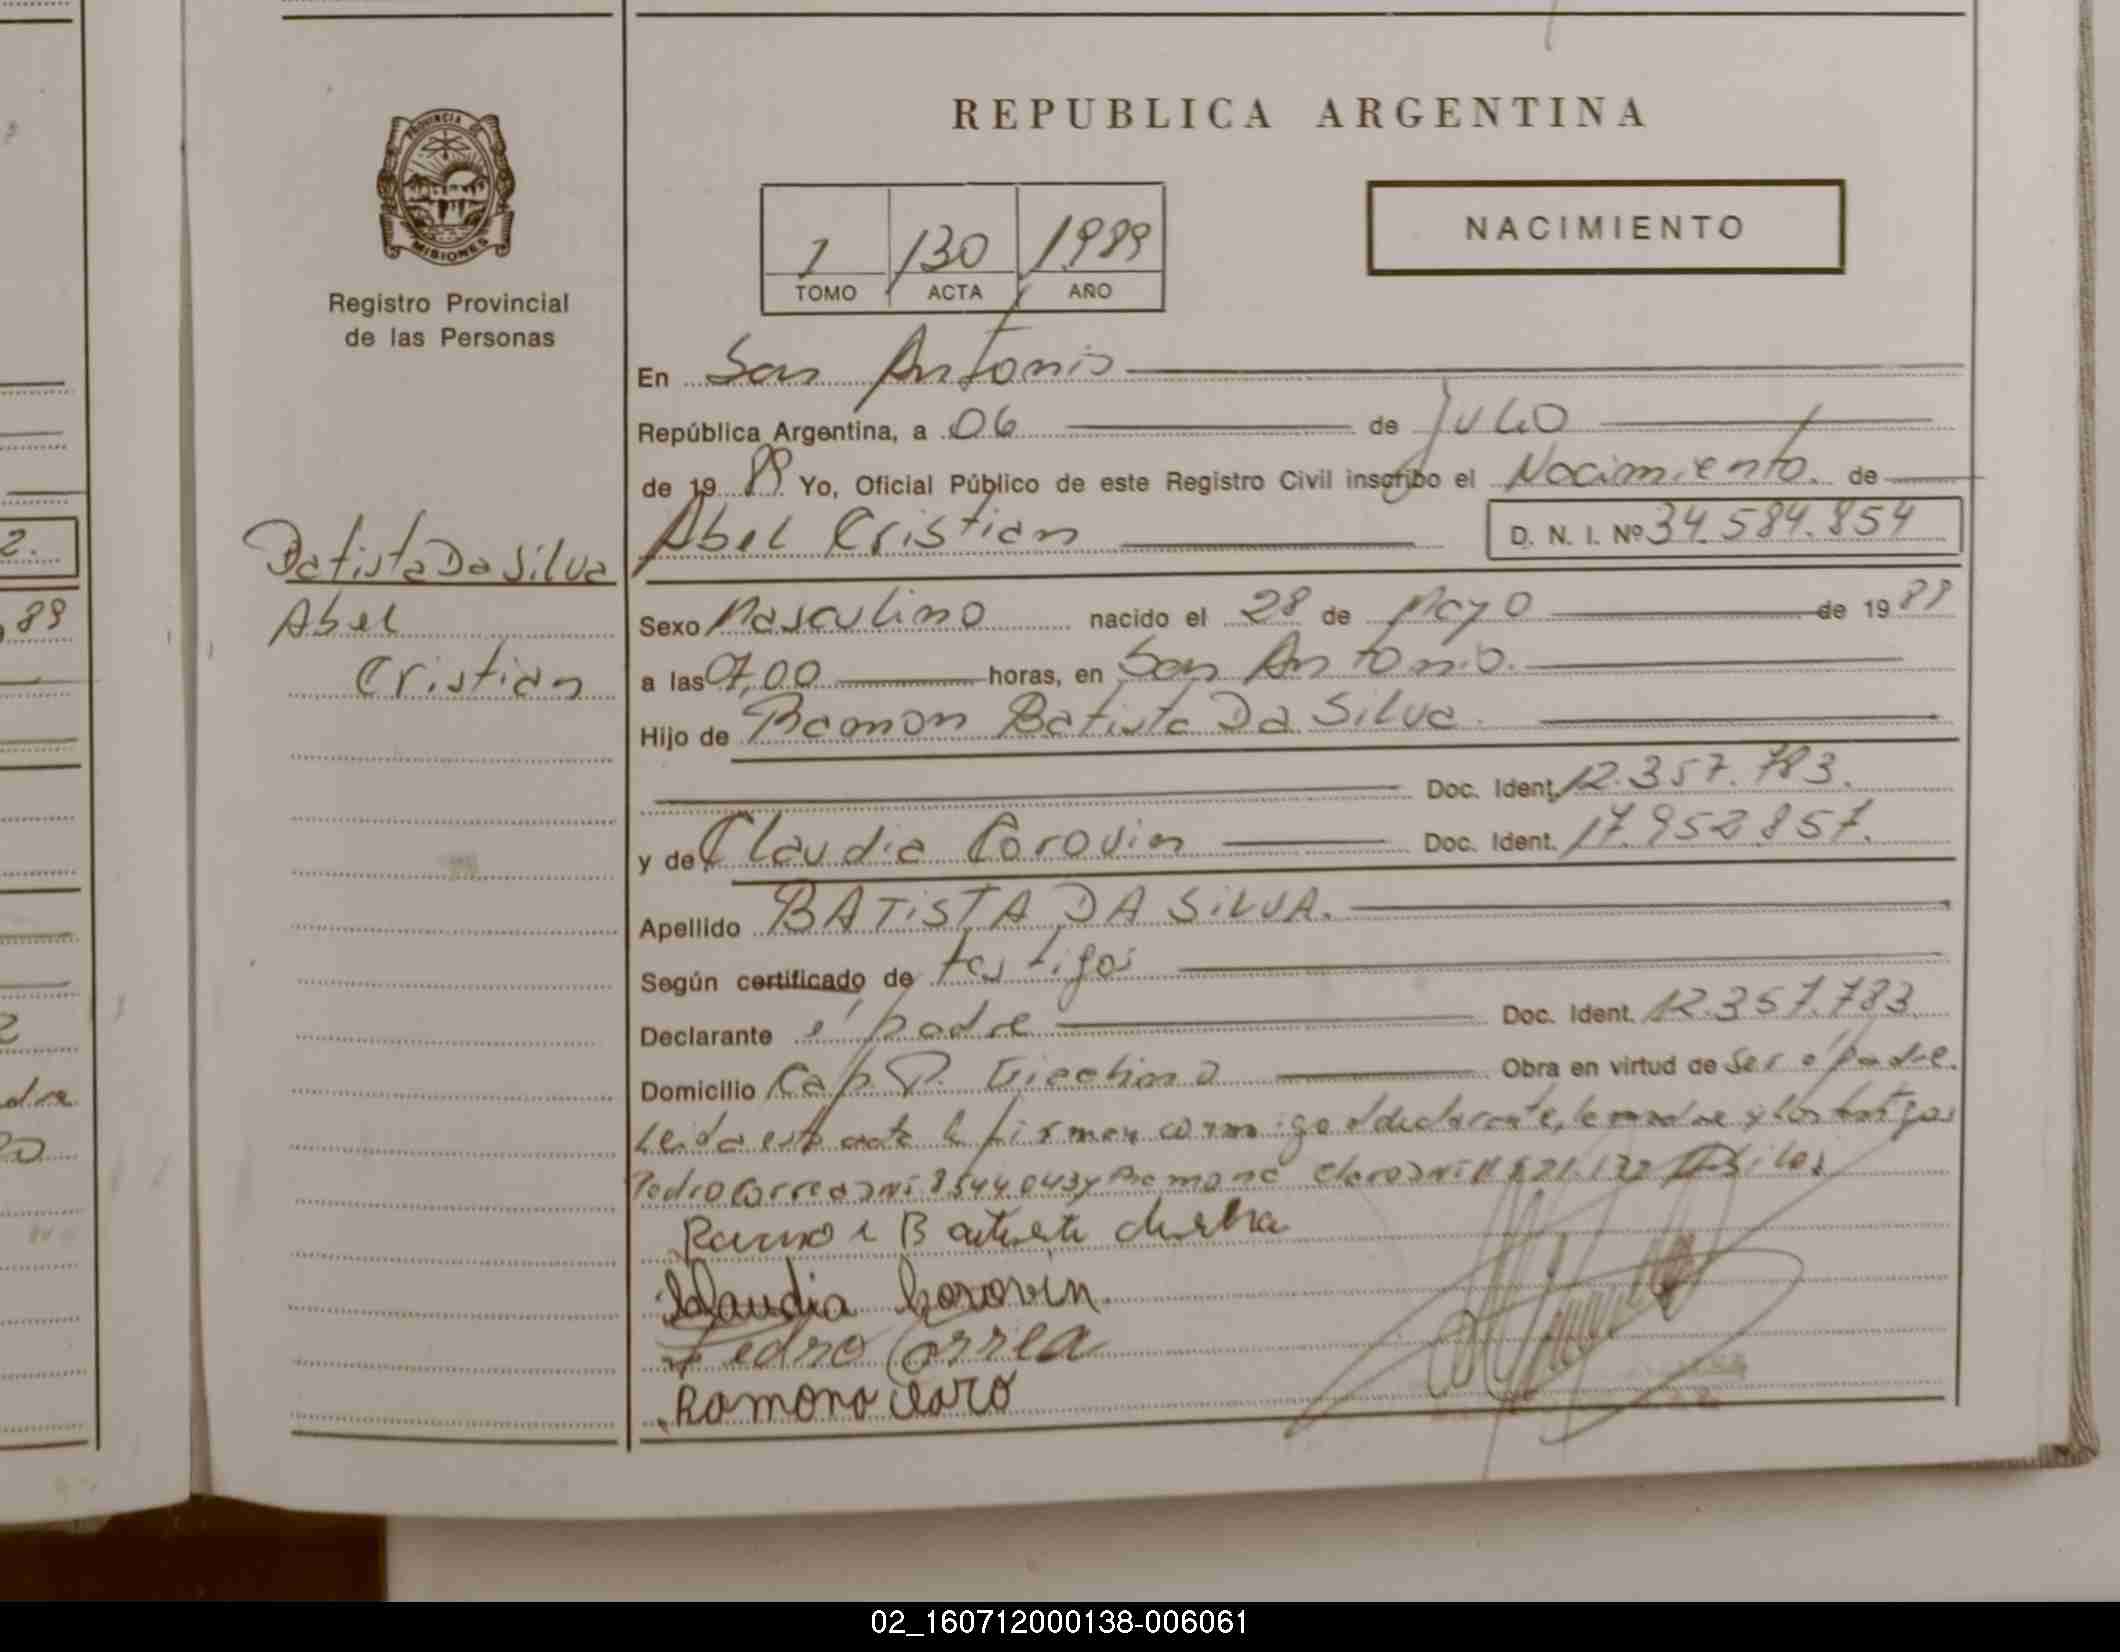 REPUBLICA ARGENTINA
PROVINCIA DE
MISIONES
Registro Provincial
de las Personas
1 130 1989
TOMO ACTA AÑO
NACIMIENTO
En San Antonio
República Argentina, a 06 de Julio
de 1989 Yo, Oficial Público de este Registro Civil inscribo el Nacimiento de
Batista Da Silva
Abel
Cristian
Abel Cristian D. N. I. Nº 34.584.854
Sexo Masculino nacido el 28 de Mayo de 1989
a las 07,00 horas, en San Antonio.
Hijo de Ramon Batista Da Silva.
Doc. Ident. 12.357.783.
y de Claudia Corovin Doc. Ident. 17.952.857.
Apellido BATISTA DA SILVA.
Según certificado de testigos
Declarante el padre Doc. Ident. 12.357.783
Domicilio Cap. D. Obra en virtud de ser el padre.
Leida este acta la firman conmigo el declarante, la madre y los testigos
Pedro Correa DNI 8544043 y Ramona Claro DNI
Ramon Batista
Klaudia Corovin.
Pedro Correa
Ramona Claro
2.
89
dre
02_160712000138-006061